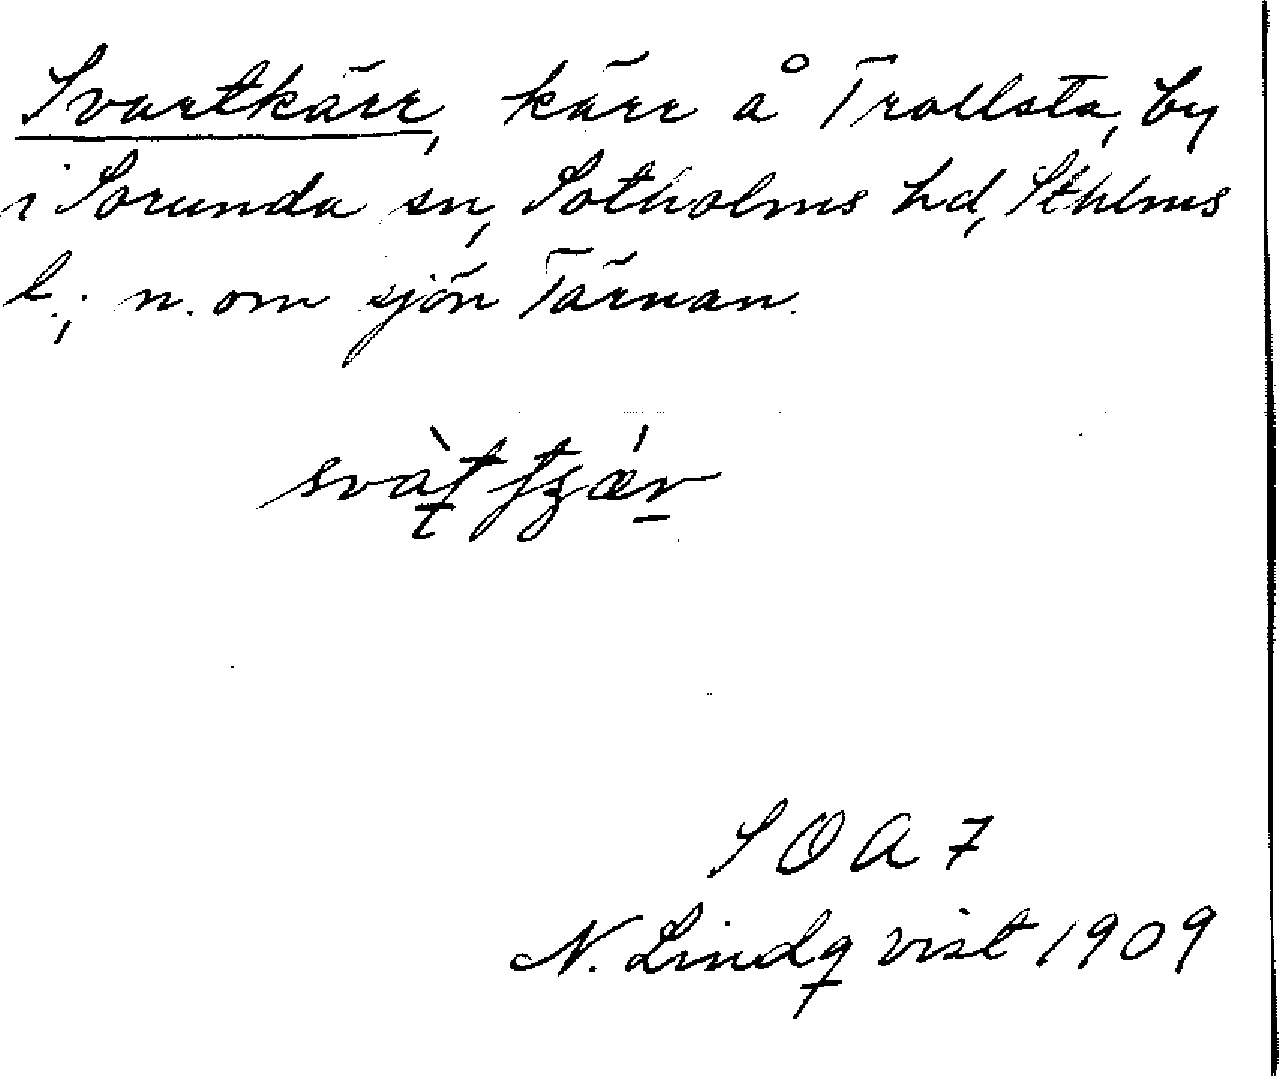 Svartkärr, kärr å Trollsta, by
i Sorunda sn, Sotholms hd, Sthlms
l.; n. om sjön Tärnan.
SOA 7
N. Lindqvist 1909